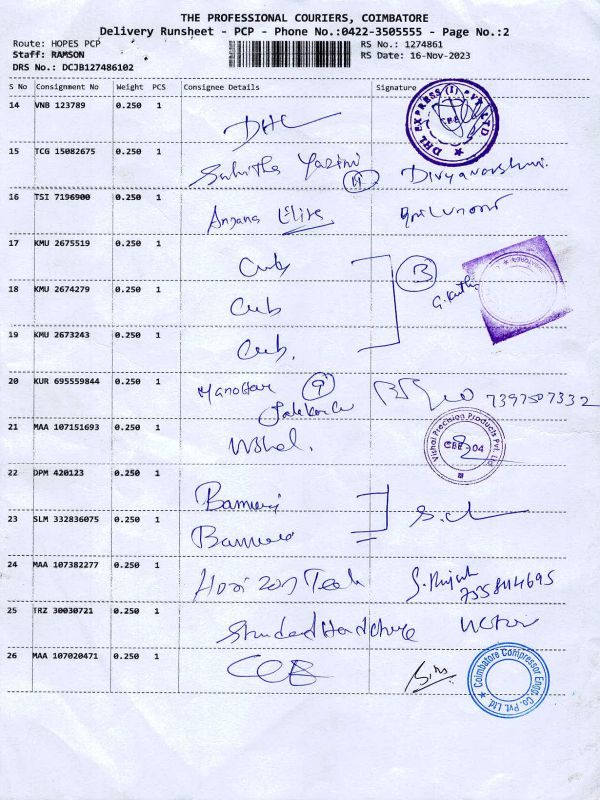 THE PROFESSIONAL COURIERS, COIMBATORE
Delivery Runsheet - PCP - Phone No.:0422-3505555 - Page No.:2
Route: HOPES PCP
RS No.: 1274861
Staff: RAMSON
RS Date: 16-Nov-2023
DRS No.: DCJB127486102
S No Consignment No Weight PCS Consignee Details Signature
14 VNB 123789 0.250 1 DHL
DHL EXPRESS (I) PVT LTD CBE
15 TCG 15082675 0.250 1
16 TSI 7196900 0.250 1 Anjana
17 KMU 2675519 0.250 1 Cub
18 KMU 2674279 0.250 1 Cub B
19 KMU 2673243 0.250 1 Cub.
20 KUR 695559844 0.250 1 9 7397507332
21 MAA 107151693 0.250 1 Vishal.
Vishal Precision Products Pvt. Ltd CBE - 04
22 DPM 420123 0.250 1
23 SLM 332836075 0.250 1
24 MAA 107382277 0.250 1 Horizon Tech
25 TRZ 30030721 0.250 1
26 MAA 107020471 0.250 1
Coimbatore Compressor Engg. Co. Pvt. Ltd.